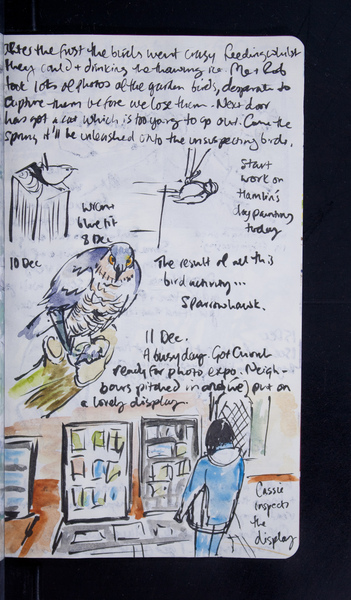 After the frost the birds went crazy feeding whilst
they could & drinking the thawing ice. Me & Rob
took lots of photos of the garden birds, desperate to
capture them before we lose them. Next door
has got a cat which is too young to go out. Come the
spring it'll be unleashed onto the unsuspecting birds.
Start
work on
Hamlin's
dog painting
today
Wren &
blue tit
8 Dec
10 Dec
The result of all this
bird activity...
Sparrowhawk.
11 Dec.
A busy day. Got Church
ready for photo expo. Neigh-
bours pitched in and (we) put on
a lovely display.
Cassie
inspects
the
display